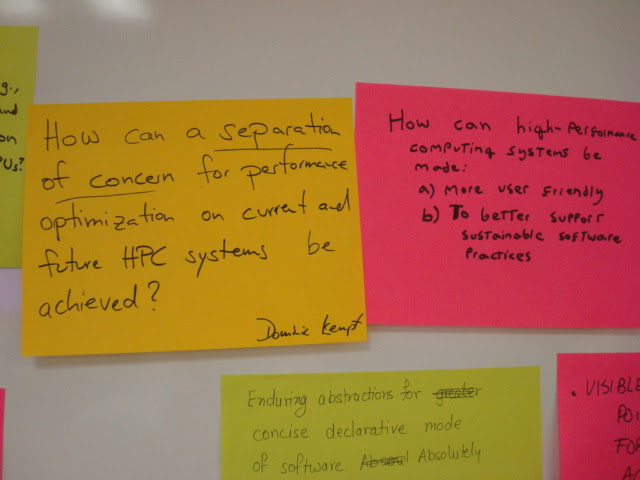 g.,
and
on
PUs?
How can a separation
of concern for performance
optimization on current and
future HPC systems be
achieved?
Dominic Kempf
How can high-performance
computing systems be
made:
a) More user friendly
b) To better support
sustainable software
practices
Enduring abstractions for greater
concise declarative mode
of software. Absol Absolutely
• VISIBLE
POI
FOR